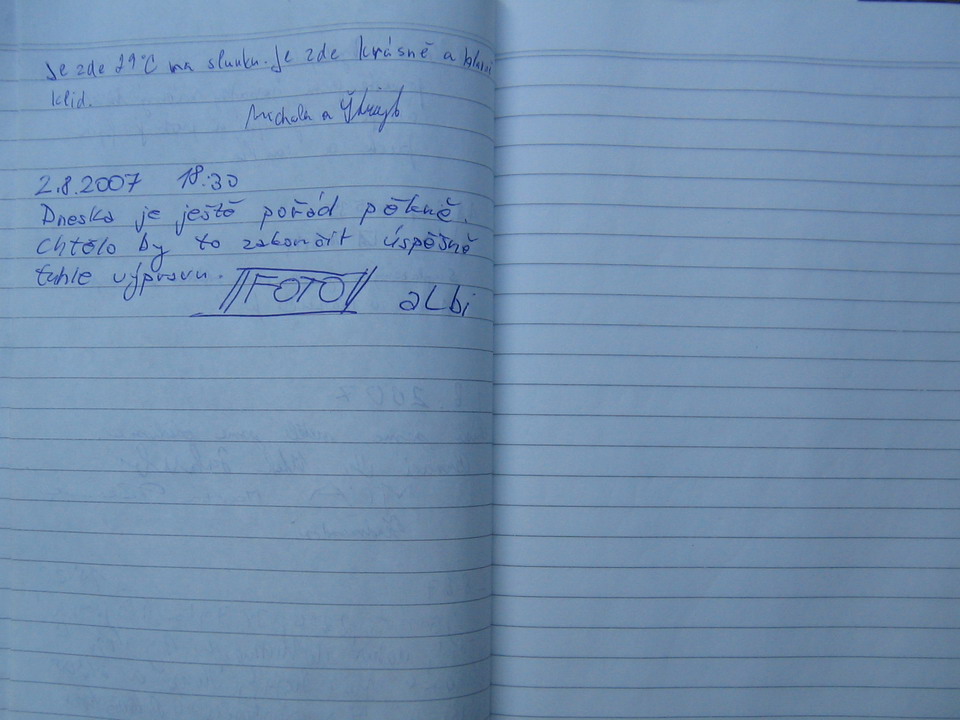 Je zde 29°C na slunku. Je zde krásně a
klid.
Michala a
2.8.2007 18:30
Dneska je ještě pořád pěkně.
Chtělo by to zakončit úspěšně
tuhle výpravu.
FOTO albi